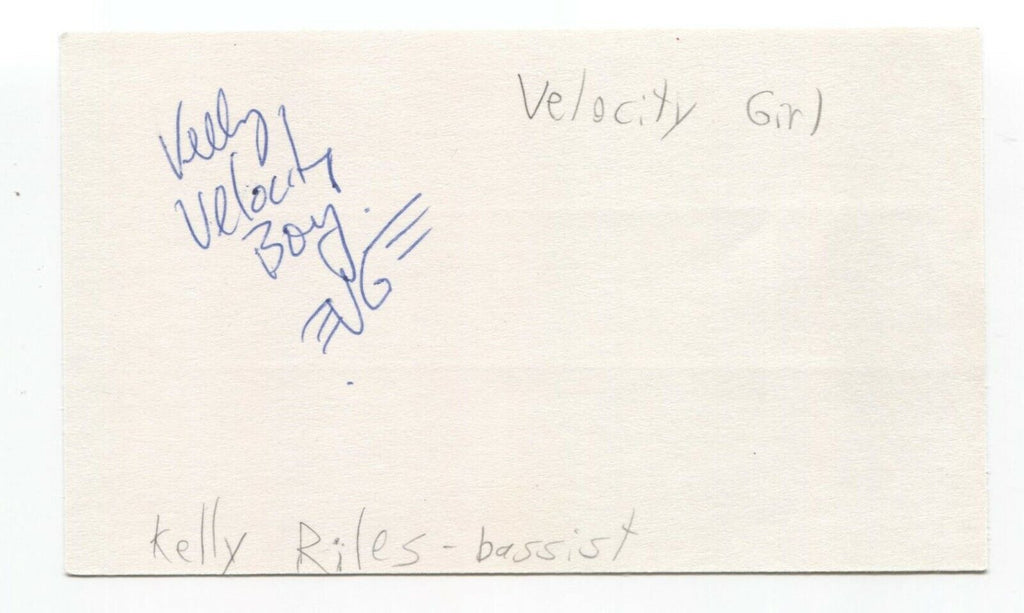 Velocity Girl
Kelly
Velocity
Boy.
VG
Kelly Riles - bassist